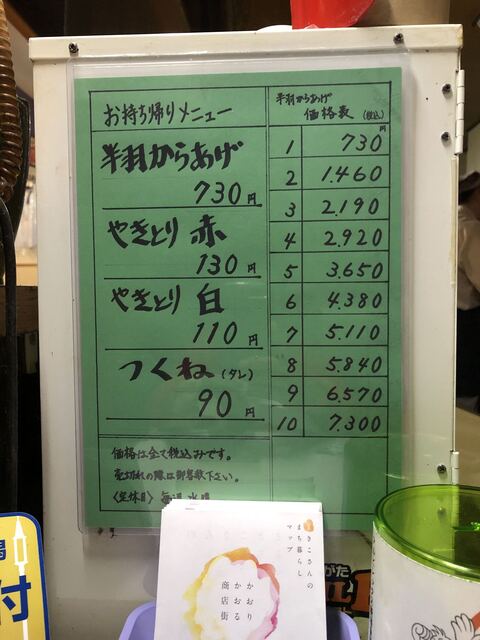 お持ち帰りメニュー
半羽からあげ
730円
やきとり 赤
130円
やきとり 白
110円
つくね(タレ)
90円
価格は全て税込みです。
売切れの際は御容赦下さい。
〈定休日〉毎週水曜
半羽からあげ
価格表(税込)
1 730円
2 1.460
3 2.190
4 2.920
5 3.650
6 4.380
7 5.110
8 5.840
9 6.570
10 7.300
きこさんの
まち暮らし
マップ
かおり
かおる
商店街
付